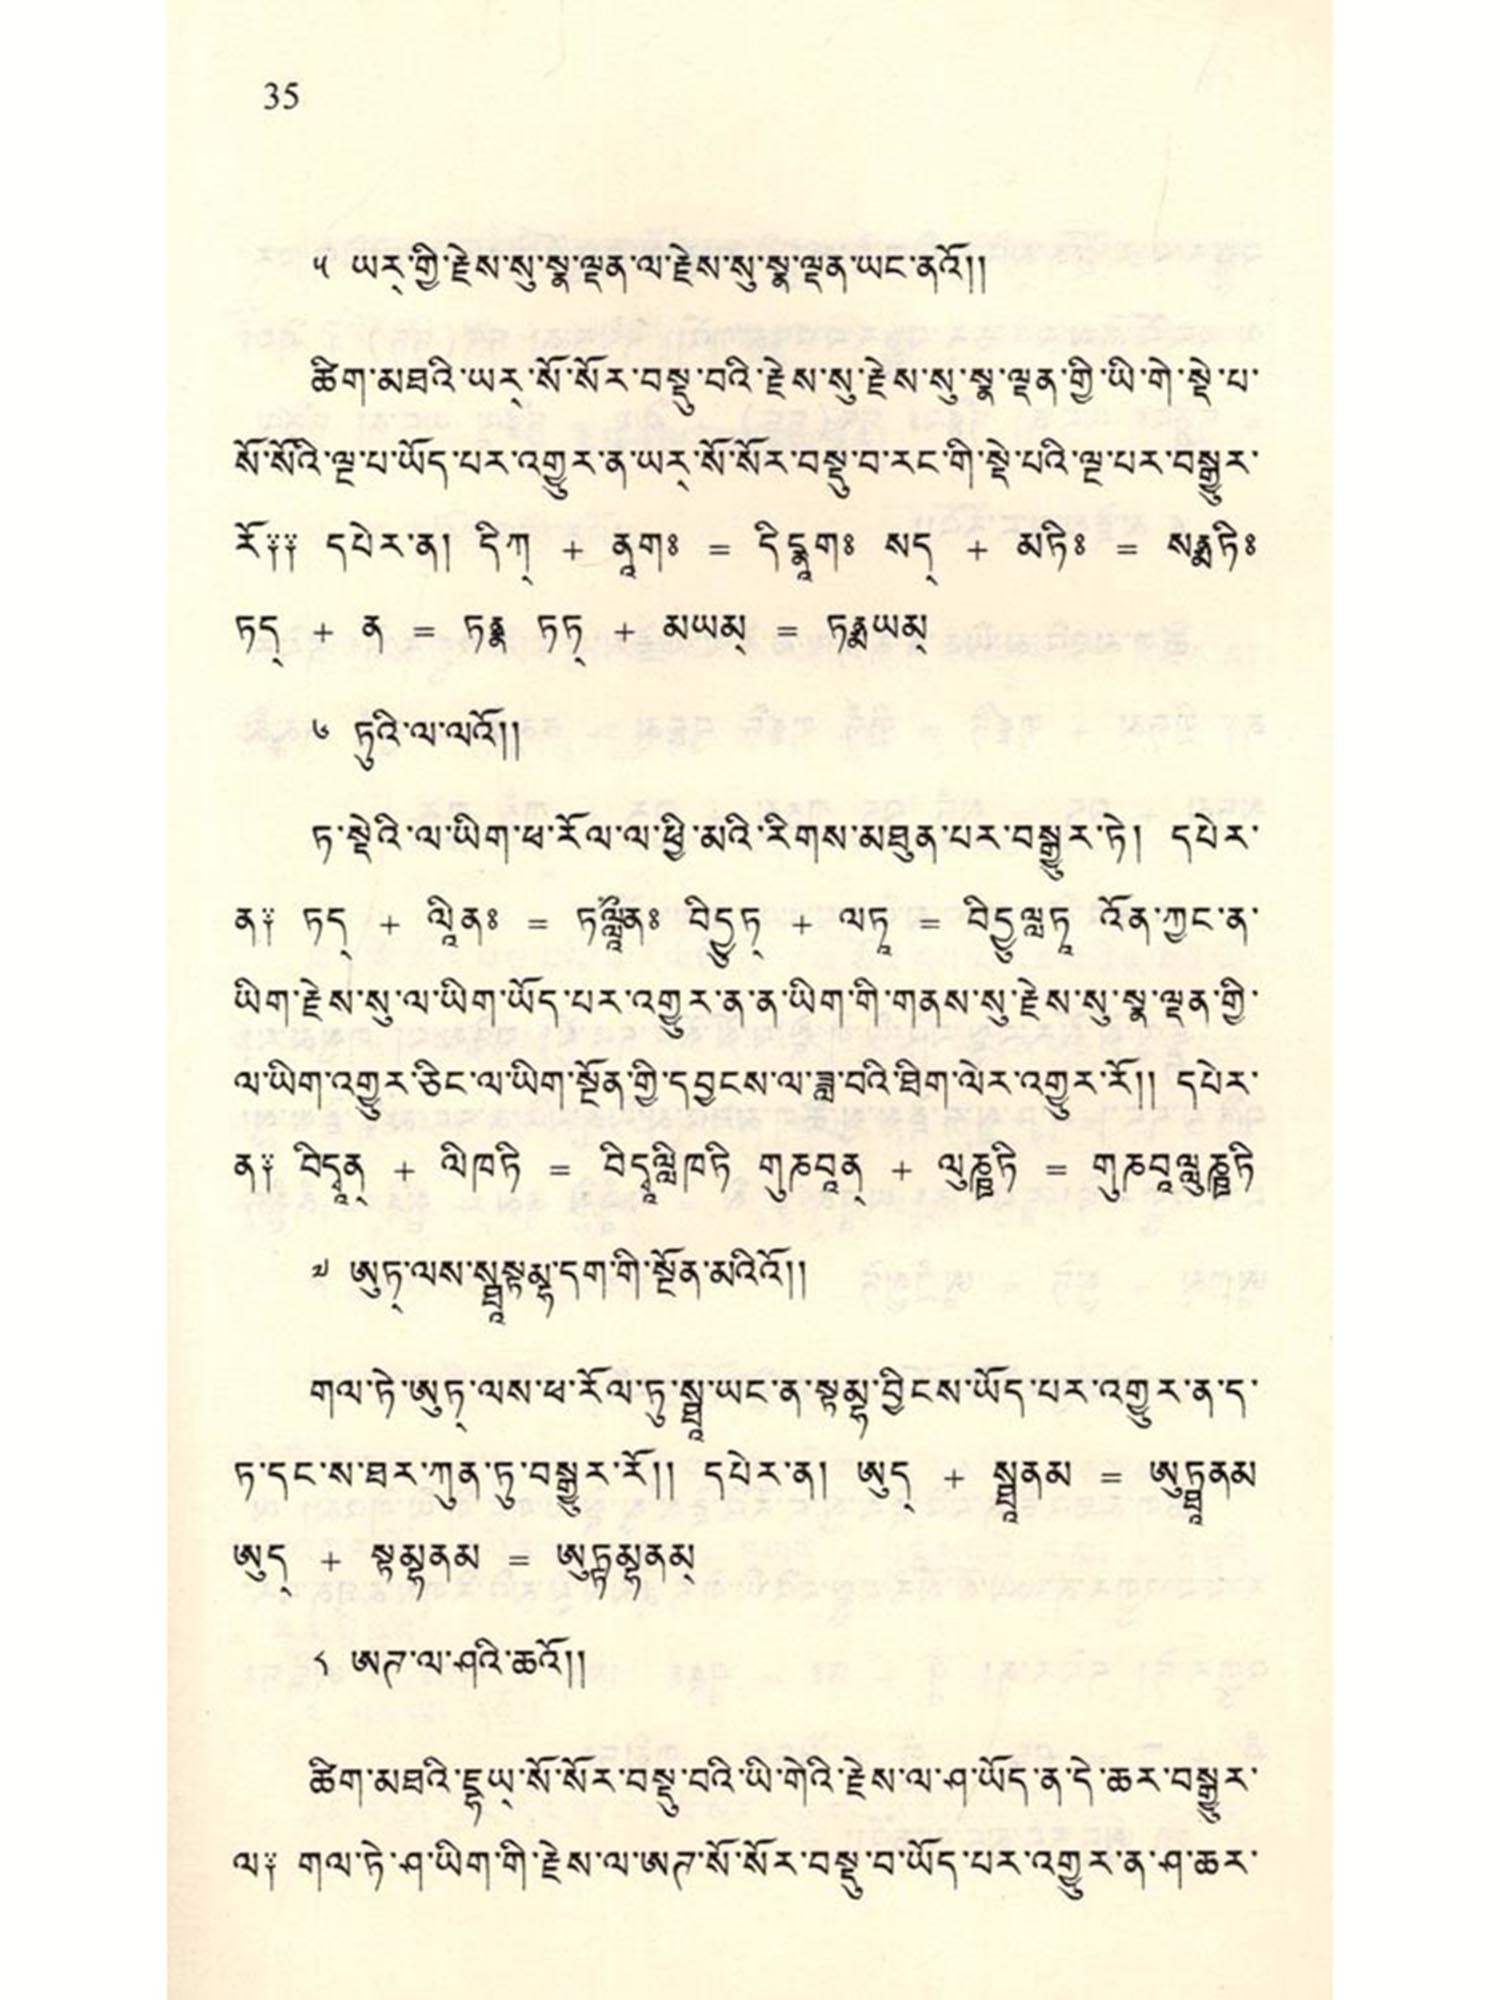 35
༥ ཡར྄་གྱི་རྗེས་སུ་སྣ་ལྡན་ལ་རྗེས་སུ་སྣ་ལྡན་ཡང་ནའོ།།
ཚིག་མཐའི་ཡར྄་སོ་སོར་བསྡུ་བའི་རྗེས་སུ་རྗེས་སུ་སྣ་ལྡན་གྱི་ཡི་གེ་སྡེ་པ་
སོ་སོའི་ལྔ་པ་ཡོད་པར་འགྱུར་ན་ཡར྄་སོ་སོར་བསྡུ་བ་རང་གི་སྡེ་པའི་ལྔ་པར་བསྒྱུར་
རོ༑༑ དཔེར་ན། དིཀ྄ + ནཱགཿ = དིངྣཱགཿ སད྄ + མཏིཿ = སནྨཏིཿ
ཏད྄ + ན = ཏནྣ ཏཏ྄ + མཡམ྄ = ཏནྨཡམ྄
༦ ཏུའི་ལ་ལའོ།།
ཏ་སྡེའི་ལ་ཡིག་ཕ་རོལ་ལ་ཕྱི་མའི་རིགས་མཐུན་པར་བསྒྱུར་ཏེ། དཔེར་
ན༑ ཏད྄ + ལཱིནཿ = ཏལླཱིནཿ བིདྱུཏ྄ + ལཏཱ = བིདྱུལླཏཱ འོན་ཀྱང་ན་
ཡིག་རྗེས་སུ་ལ་ཡིག་ཡོད་པར་འགྱུར་ན་ན་ཡིག་གི་གནས་སུ་རྗེས་སུ་སྣ་ལྡན་གྱི་
ལ་ཡིག་འགྱུར་ཅིང་ལ་ཡིག་སྔོན་གྱི་དབྱངས་ལ་ཟླ་བའི་ཐིག་ལེར་འགྱུར་རོ།། དཔེར་
ན༑ བིདྭཱན྄ + ལིཁཏི = བིདྭཱལླིཁཏི གུཎབཱན྄ + ལུཉྪཏི = གུཎབཱལླུཉྪཏི
༧ ཨུཏ྄་ལས་སྠཱསྟམྦྷ་དག་གི་སྔོན་མའིའོ།།
གལ་ཏེ་ཨུཏ྄་ལས་ཕ་རོལ་ཏུ་སྠཱ་ཡང་ན་སྟམྦྷ་བྱིངས་ཡོད་པར་འགྱུར་ན་ད་
ཏ་དང་ས་ཐར་ཀུན་ཏུ་བསྒྱུར་རོ།། དཔེར་ན། ཨུད྄ + སྠཱནམ = ཨུཏྠཱནམ
ཨུད྄ + སྟམྦྷནམ = ཨུཏྟམྦྷནམ྄
༨ ཨཊ་ལ་ཤའི་ཆའོ།།
ཚིག་མཐའི་ཛྷཡ྄་སོ་སོར་བསྡུ་བའི་ཡི་གེའི་རྗེས་ལ་ཤ་ཡོད་ན་དེ་ཆར་བསྒྱུར་
ལ༑ གལ་ཏེ་ཤ་ཡིག་གི་རྗེས་ལ་ཨཊ་སོ་སོར་བསྡུ་བ་ཡོད་པར་འགྱུར་ན་ཤ་ཆར་